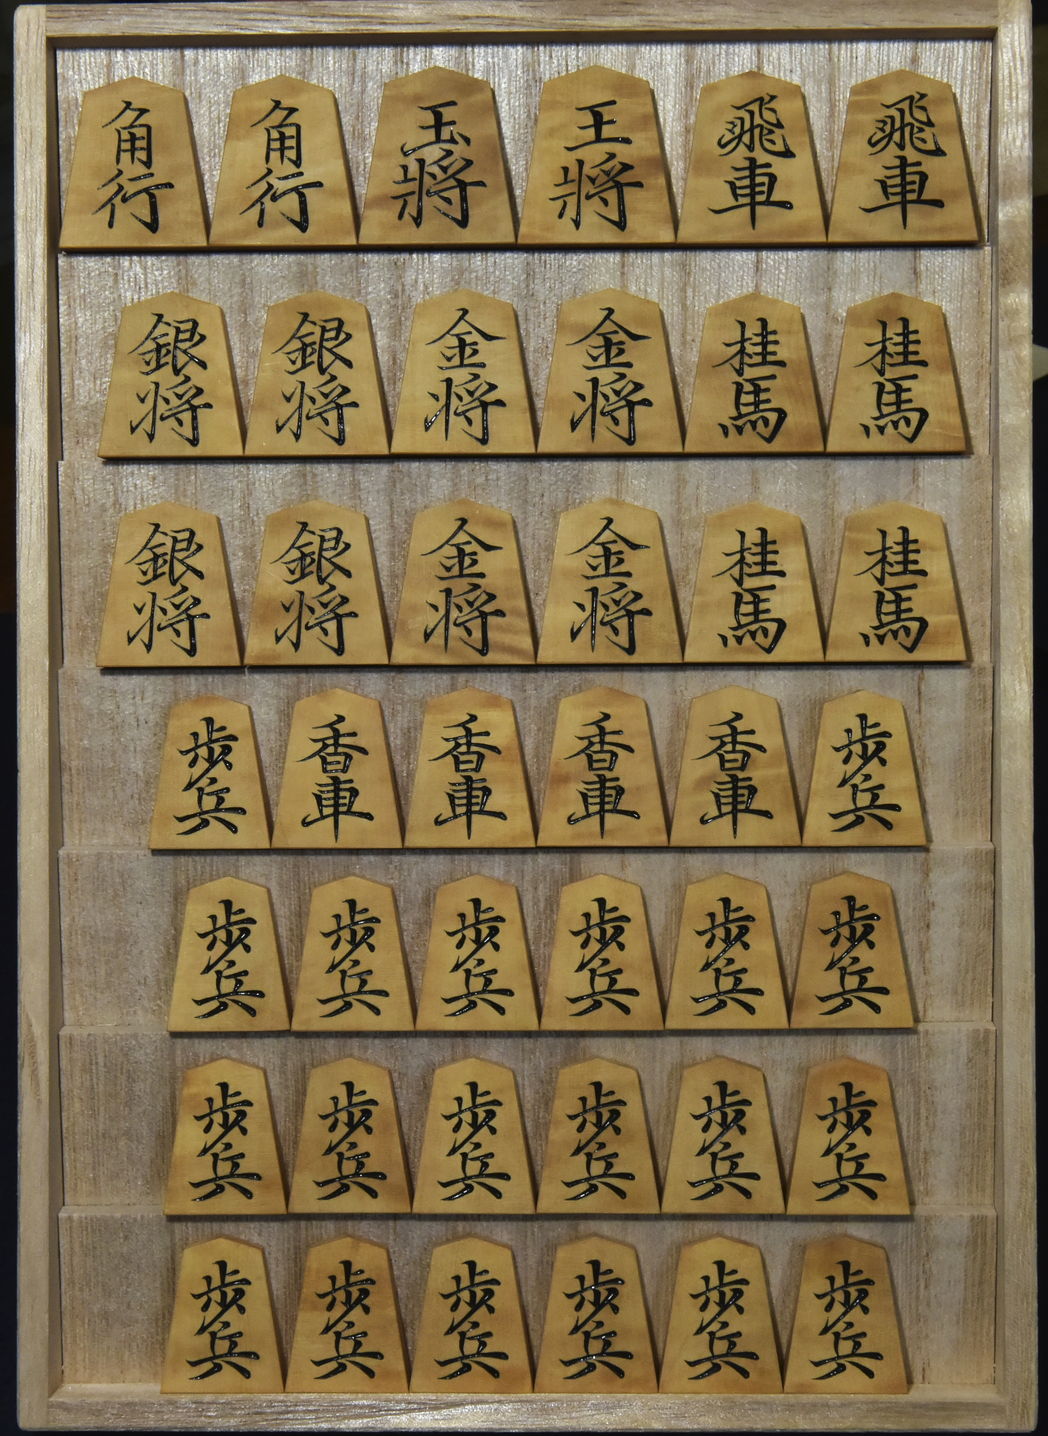 角行 角行 玉將 王將 飛車 飛車
銀将 銀将 金将 金将 桂馬 桂馬
銀将 銀将 金将 金将 桂馬 桂馬
歩兵 香車 香車 香車 香車 歩兵
歩兵 歩兵 歩兵 歩兵 歩兵 歩兵
歩兵 歩兵 歩兵 歩兵 歩兵 歩兵
歩兵 歩兵 歩兵 歩兵 歩兵 歩兵